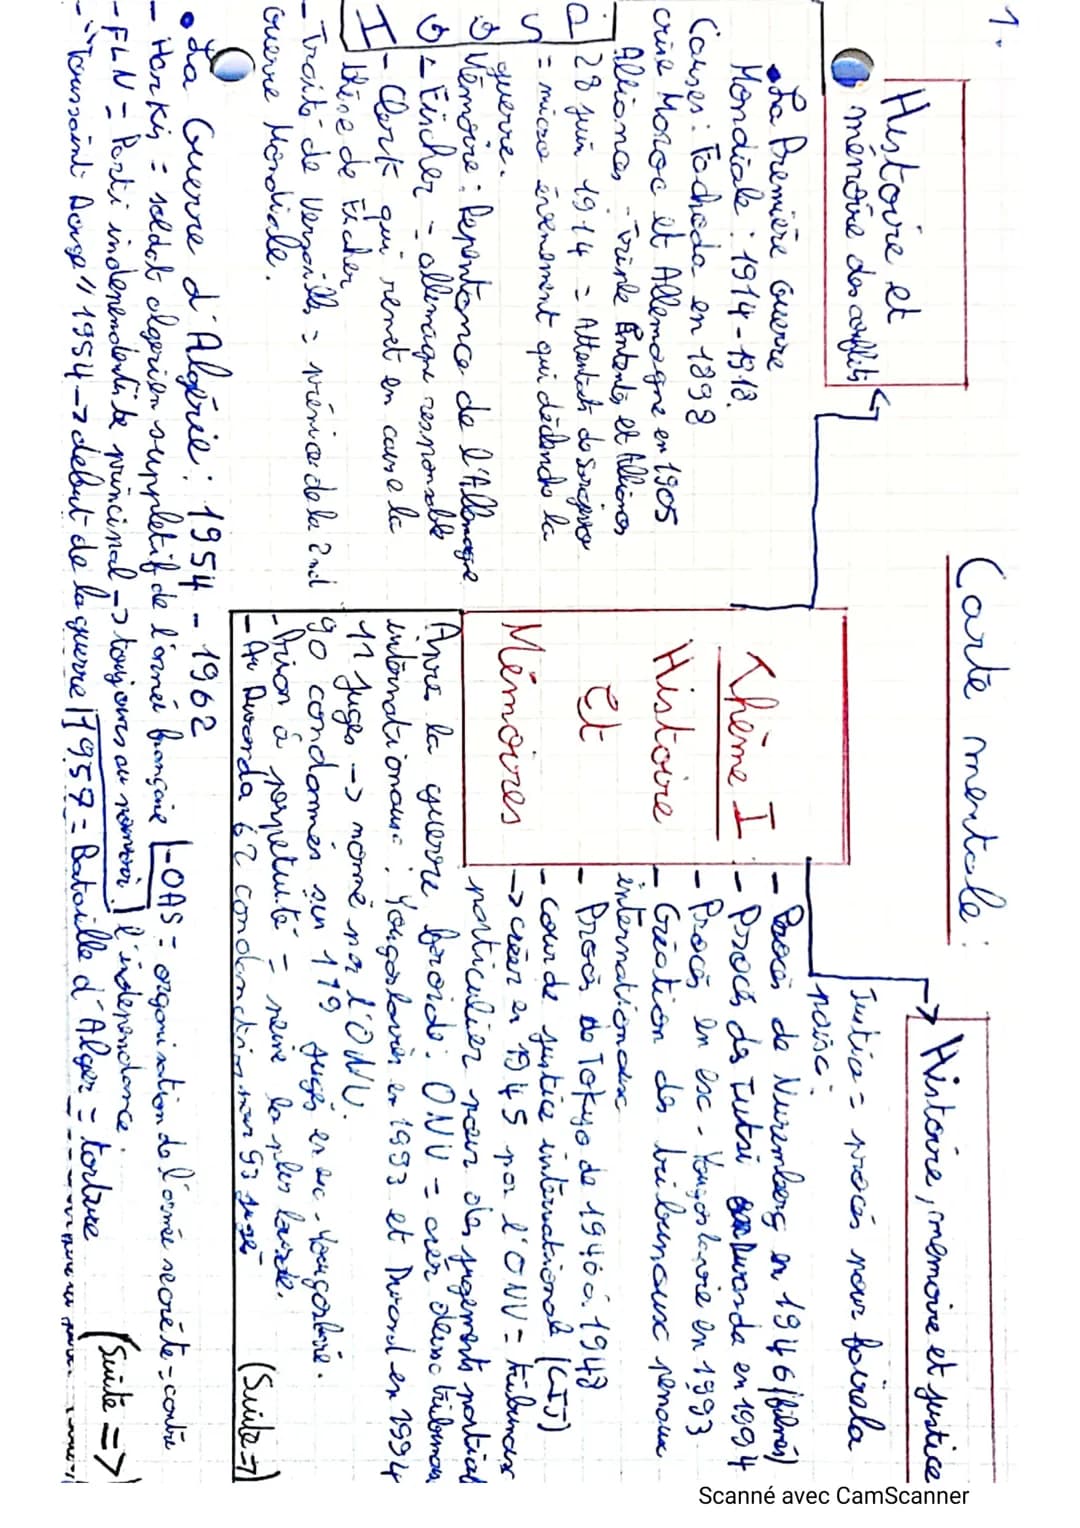 1.
Carte mentale:
Histoire et
mémoire des conflits
• La Première Guerre
Mondiale : 1914-1918.
Causes : Fachoda en 1898
crise Maroc et Allemagne en 1905
Alliances - Triple Entente et Alliance
28 juin 1914 = Attentat de Sarajevo
= micro évènement qui déclenche la
guerre.
Mémoire : Repentance de l'Allemagne
- Fischer = allemagne responsable
- Clark qui remet en cause la
thèse de Fischer
- Traité de Versailles = prémice de la 2nd
Guerre Mondiale.
Thème I
Histoire
Et
Mémoires
Histoire, mémoire et justice
Justice = procès pour faire la
paix :
- Procès de Nuremberg en 1946 (filmés)
- Procès des Tutsi au Rwanda en 1994
- Procès en ex-Yougoslavie en 1993
- Création des tribunaux penaux
internationaux
- Procès de Tokyo de 1946 à 1948
- cour de justice internationale (CIJ)
→ créer en 1945 par l'ONU = tribunaux
particulier pour des jugements partial
Avec la guerre froide : ONU = créer deux tribunaux
internationaux : Yougoslavie en 1993 et Rwand en 1994
11 juges → nomé par l'ONU.
90 condamnés sur 119 jugés en ex-Yougoslavie.
- Prison à perpetuité = peine la plus lourde.
- Au Rwanda 62 condamnations pour 93 jugés
(Suite →)
• La Guerre d'Algérie : 1954 - 1962
- Harkis = soldat algerien suppletif de l'armée française
- OAS = organisation de l'armée secrète = contre
l'independance.
- FLN = Parti independentiste principal → toujours au pouvoir.
- "Toussaint Rouge" 1954 → debut de la guerre
1957 = Bataille d'Alger = torture
(Suite ⇒)